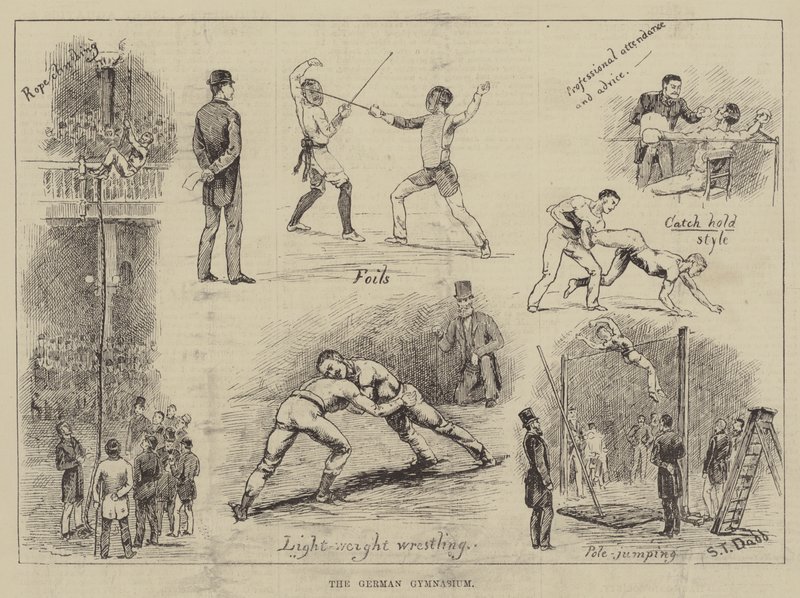 Rope climbing
Foils
Professional attendance
and advice.
Catch hold
style
Light-weight wrestling.
Pole-jumping
S.T. Dadd
THE GERMAN GYMNASIUM.